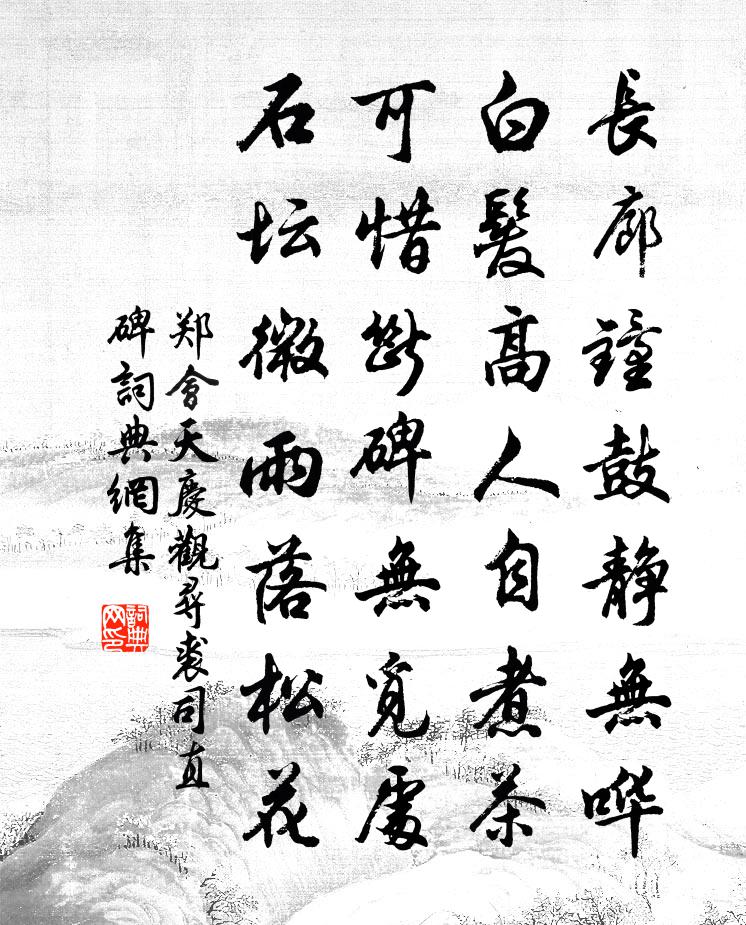 長廊鐘鼓静無哗
白髮高人自煮茶
可惜斷碑無覓處
石坛微雨落松花
郑會天慶觀尋裘司直
碑詞典網集
詞典网印